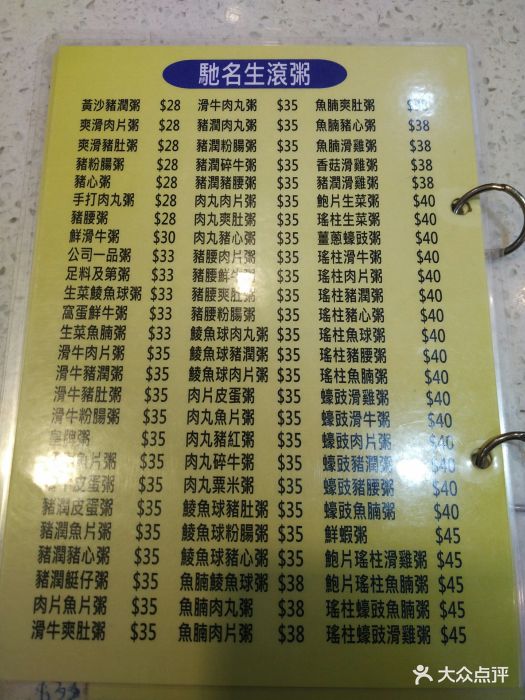 馳名生滾粥
黃沙豬潤粥 $28
爽滑肉片粥 $28
爽滑豬肚粥 $28
豬粉腸粥 $28
豬心粥 $28
手打肉丸粥 $28
豬腰粥 $28
鮮滑牛粥 $30
公司一品粥 $33
足料及第粥 $33
生菜鯪魚球粥 $33
窩蛋鮮牛粥 $33
生菜魚腩粥 $33
滑牛肉片粥 $35
滑牛豬潤粥 $35
滑牛豬肚粥 $35
滑牛粉腸粥 $35
粥 $35
魚片粥 $35
皮蛋粥 $35
豬潤皮蛋粥 $35
豬潤魚片粥 $35
豬潤豬心粥 $35
豬潤艇仔粥 $35
肉片魚片粥 $35
滑牛爽肚粥 $35
滑牛肉丸粥 $35
豬潤肉丸粥 $35
豬潤粉腸粥 $35
豬潤碎牛粥 $35
豬潤豬腰粥 $35
肉丸肉片粥 $35
肉丸爽肚粥 $35
肉丸豬心粥 $35
豬腰肉片粥 $35
豬腰鮮牛粥 $35
豬腰爽肚粥 $35
豬腰粉腸粥 $35
鯪魚球肉丸粥 $35
鯪魚球豬潤粥 $35
鯪魚球肉片粥 $35
肉片皮蛋粥 $35
肉丸魚片粥 $35
肉丸豬紅粥 $35
肉丸碎牛粥 $35
肉丸粟米粥 $35
鯪魚球豬肚粥 $35
鯪魚球粉腸粥 $35
鯪魚球豬心粥 $35
魚腩鯪魚球粥 $38
魚腩肉丸粥 $38
魚腩肉片粥 $38
魚腩爽肚粥
魚腩豬心粥 $38
魚腩滑雞粥 $38
香菇滑雞粥 $38
豬潤滑雞粥 $38
鮑片生菜粥 $40
瑤柱生菜粥 $40
薑蔥蠔豉粥 $40
瑤柱滑牛粥 $40
瑤柱肉片粥 $40
瑤柱豬潤粥 $40
瑤柱豬心粥 $40
瑤柱魚球粥 $40
瑤柱豬腰粥 $40
瑤柱魚腩粥 $40
蠔豉滑雞粥 $40
蠔豉滑牛粥 $40
蠔豉肉片粥 $40
蠔豉豬潤粥 $40
蠔豉豬腰粥 $40
蠔豉魚腩粥 $40
鮮蝦粥 $45
鮑片瑤柱滑雞粥 $45
鮑片瑤柱魚腩粥 $45
瑤柱蠔豉魚腩粥 $45
瑤柱蠔豉滑雞粥 $45
大众点评